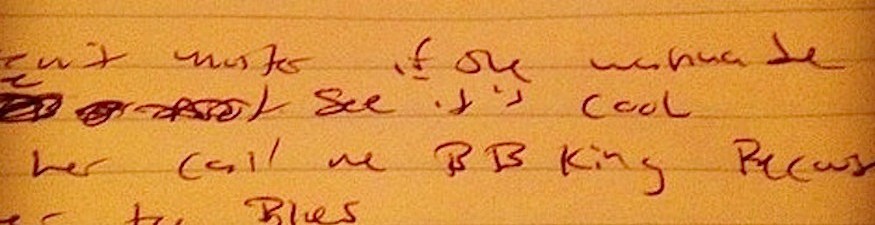 if she wanna be
See it's cool
her call me BB King Becaus
Blues